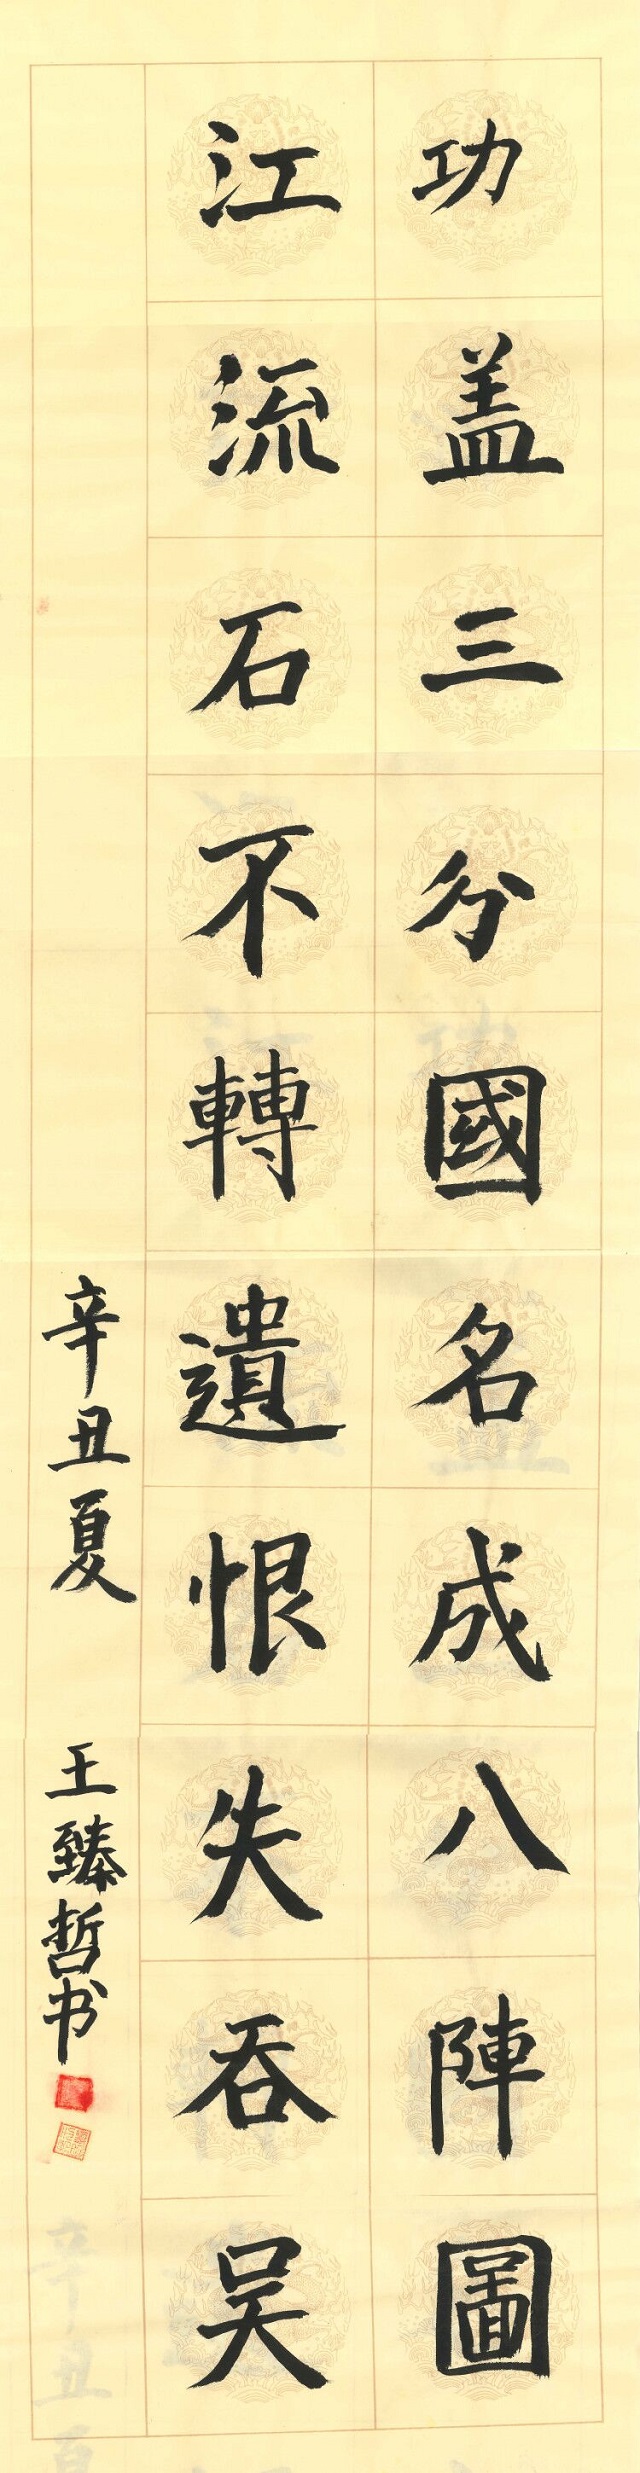 功盖三分國名成八陣圖
江流石不轉遺恨失吞吴
辛丑夏 王臻哲书